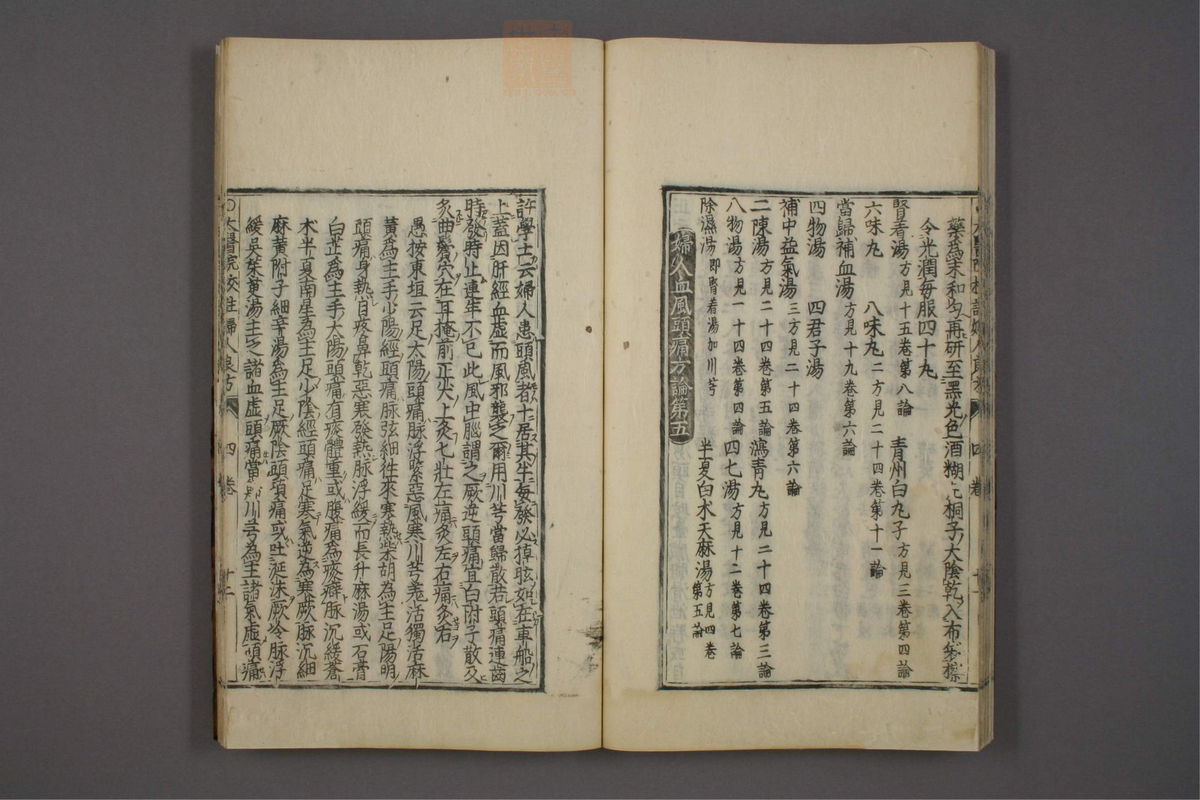 藥為末和匀再研至黑光色酒糊丸桐子大陰乾入布袋擦
令光潤每服四十丸
腎着湯方見十五卷第八論　青州白丸子方見三卷第四論
六味丸　八味丸二方見二十四卷第十一論
當歸補血湯方見十九卷第六論
四物湯　四君子湯
補中益氣湯三方見二十四卷第六論
二陳湯方見二十四卷第五論　瀉青丸方見二十四卷第三論
八物湯方見二十四卷第四論　四七湯方見十二卷第七論
除濕湯即腎着湯加川芎　半夏白朮天麻湯方見四卷第五論
婦人血風頭痛方論第五
許學士云婦人患頭風者十居其半每發必掉眩如在車船之
上蓋因肝經血虛而風邪襲之爾用川芎當歸散若頭痛連齒
時發時止連年不已此風中腦謂之厥逆頭痛宜白附子散及
灸曲鬢穴在耳掩前正尖上灸七壯左痛灸左右痛灸右
愚按東垣云足太陽頭痛脉浮緊惡風寒川芎羗活獨活麻
黄為主手少陽經頭痛脉弦細徃來寒熱柴胡為主足陽明
頭痛身熱目疼鼻乾惡寒發熱脉浮緩而長升麻湯或石膏
白芷為主手太陽頭痛有痰體重或腹痛為痰癖脉沉緩蒼
朮半夏南星為主足少陰經頭痛足寒氣逆為寒厥脉沉細
麻黄附子細辛湯為主足厥陰頭項痛或吐涎沫厥冷脉浮
緩吳茱萸湯主之諸血虛頭痛當歸川芎為主諸氣虛頭痛
太醫院校註婦人良方　四卷　十二